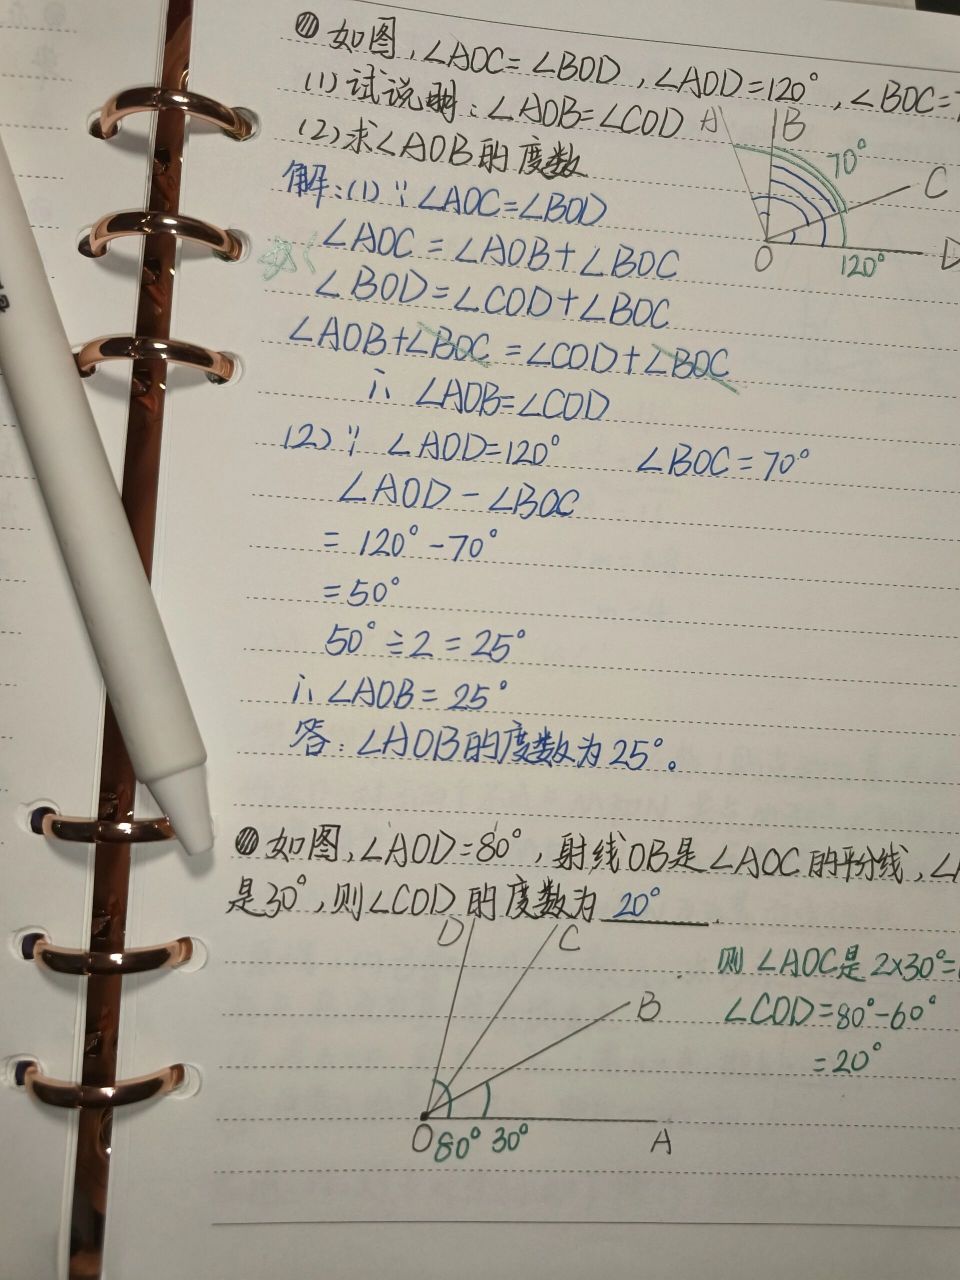 如图,∠AOC=∠BOD,∠AOD=120°,∠BOC=
(1)试说明:∠AOB=∠COD
(2)求∠AOB的度数
A B
70°
C
O 120° D
解:(1)∵∠AOC=∠BOD
∠AOC=∠AOB+∠BOC
∠BOD=∠COD+∠BOC
∠AOB+∠BOC=∠COD+∠BOC
∴ ∠AOB=∠COD
(2)∵ ∠AOD=120° ∠BOC=70°
∠AOD-∠BOC
=120°-70°
=50°
50°÷2=25°
∴∠AOB=25°
答:∠AOB的度数为25°。
如图,∠AOD=80°,射线OB是∠AOC的平分线,∠
是30°,则∠COD的度数为 20° .
D C
则∠AOC是2×30°=
B
∠COD=80°-60°
=20°
O 80° 30° A